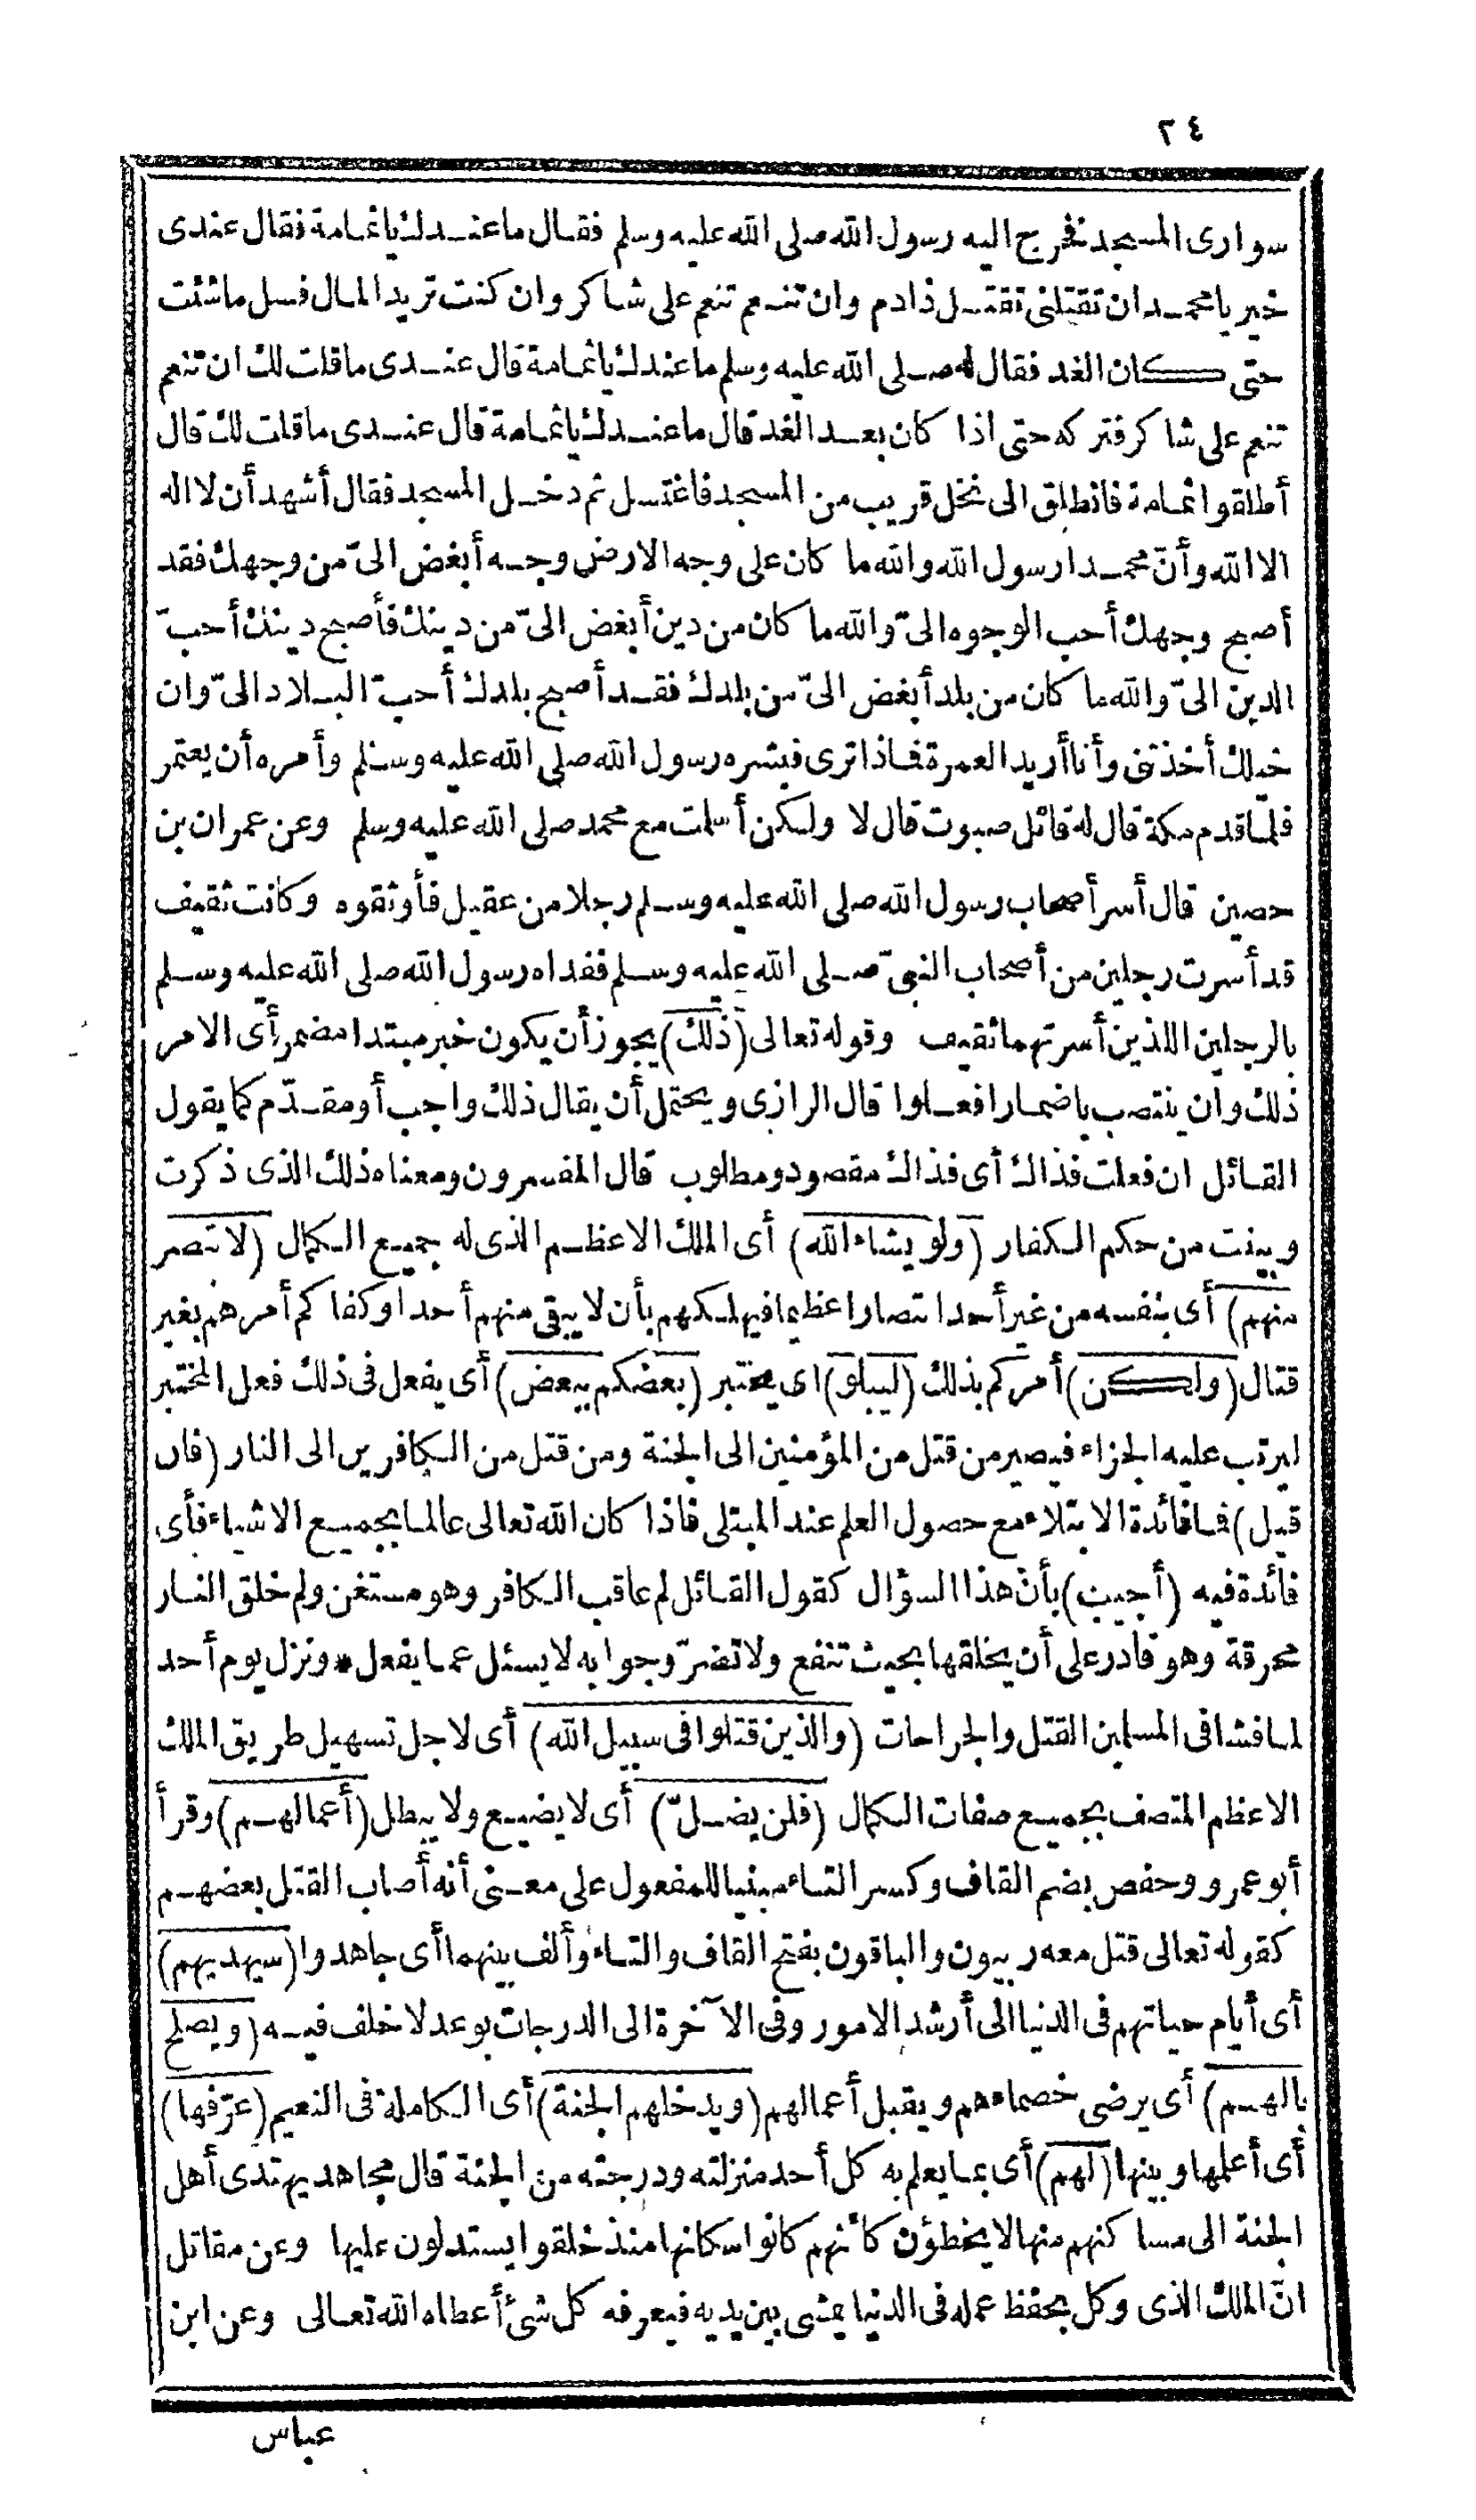 ٢٤
سوارى المسجد فخرج اليه رسول الله صلى الله عليه وسلم فقال ما عندك ياثمامة فقال عندى
خير يا محمد ان تقتلنى تقتل ذا دم وان تنعم تنعم على شاكر وان كنت تريد المال فسل ما شئت
حتى كان الغد فقال له صلى الله عليه وسلم ما عندك ياثمامة قال عندى ما قلت لك ان تنعم
تنعم على شاكر فتركه حتى اذا كان بعد الغد قال ما عندك ياثمامة قال عندى ما قلت لك قال
أطلقوا ثمامة فانطلق الى نخل قريب من المسجد فاغتسل ثم دخل المسجد فقال أشهد أن لا اله
الا الله وأنّ محمدا رسول الله والله ما كان على وجه الارض وجه أبغض الىّ من وجهك فقد
أصبح وجهك أحب الوجوه الىّ والله ما كان من دين أبغض الىّ من دينك فأصبح دينك أحبّ
الدين الىّ والله ما كان من بلد أبغض الىّ من بلدك فقد أصبح بلدك أحبّ البلاد الىّ وان
خيلك أخذتنى وأنا أريد العمرة فماذا ترى فبشره رسول الله صلى الله عليه وسلم وأمره أن يعتمر
فلما قدم مكة قال له قائل صبوت قال لا ولكن أسلمت مع محمد صلى الله عليه وسلم وعن عمران بن
حصين قال أسر أصحاب رسول الله صلى الله عليه وسلم رجلا من عقيل فأوثقوه وكانت ثقيف
قد أسرت رجلين من أصحاب النبىّ صلى الله عليه وسلم ففداه رسول الله صلى الله عليه وسلم
بالرجلين اللذين أسرتهما ثقيف وقوله تعالى (ذلك) يجوز أن يكون خبر مبتدا مضمر أى الامر
ذلك وان ينتصب باضمار افعلوا قال الرازى ويحتمل أن يقال ذلك واجب أو مقدّم كما يقول
القائل ان فعلت فذاك أى فذاك مقصود ومطلوب قال المفسرون ومعناه ذلك الذى ذكرت
وبينت من حكم الكفار (ولو يشاء الله) أى الملك الاعظم الذى له جميع الكمال (لانتصر
منهم) أى بنفسه من غير أحد انتصارا عظيما فيهلكهم بأن لا يبقى منهم أحدا وكفاكم أمرهم بغير
قتال (ولكن) أمركم بذلك (ليبلو) اى يختبر (بعضكم ببعض) أى يفعل فى ذلك فعل المختبر
ليرتب عليه الجزاء فيصير من قتل من المؤمنين الى الجنة ومن قتل من الكافرين الى النار (فان
قيل) فما فائدة الابتلاء مع حصول العلم عند المبتلى فاذا كان الله تعالى عالما بجميع الاشياء فأى
فائدة فيه (أجيب) بأنّ هذا السؤال كقول القائل لم عاقب الكافر وهو مستغن ولم خلق النار
محرقة وهو قادر على أن يخلقها بحيث تنفع ولا تضرّ وجوابه لا يسئل عما يفعل * ونزل يوم أحد
لما فشا فى المسلمين القتل والجراحات (والذين قتلوا فى سبيل الله) أى لاجل تسهيل طريق الملك
الاعظم المتصف بجميع صفات الكمال (فلن يضلّ) أى لا يضيع ولا يبطل (أعمالهم) وقرأ
أبو عمرو وحفص بضم القاف وكسر التاء مبنيا للمفعول على معنى أنه أصاب القتل بعضهم
كقوله تعالى قتل معه ربيون والباقون بفتح القاف والتاء وألف بينهما أى جاهدوا (سيهديهم)
أى أيام حياتهم فى الدنيا الى أرشد الامور وفى الآخرة الى الدرجات بوعد لا خلف فيه (ويصلح
بالهم) أى يرضى خصماءهم ويقبل أعمالهم (ويدخلهم الجنة) أى الكاملة فى النعيم (عرّفها)
أى أعلمها وبينها (لهم) أى بما يعلم به كل أحد منزلته ودرجته من الجنة قال مجاهد يهتدى أهل
الجنة الى مساكنهم منها لا يخطؤن كأنهم كانوا سكانها منذ خلقوا يستدلون عليها وعن مقاتل
انّ الملك الذى وكل بحفظ عمله فى الدنيا يمشى بين يديه فيعرفه كل شئ أعطاه الله تعالى وعن ابن
عباس